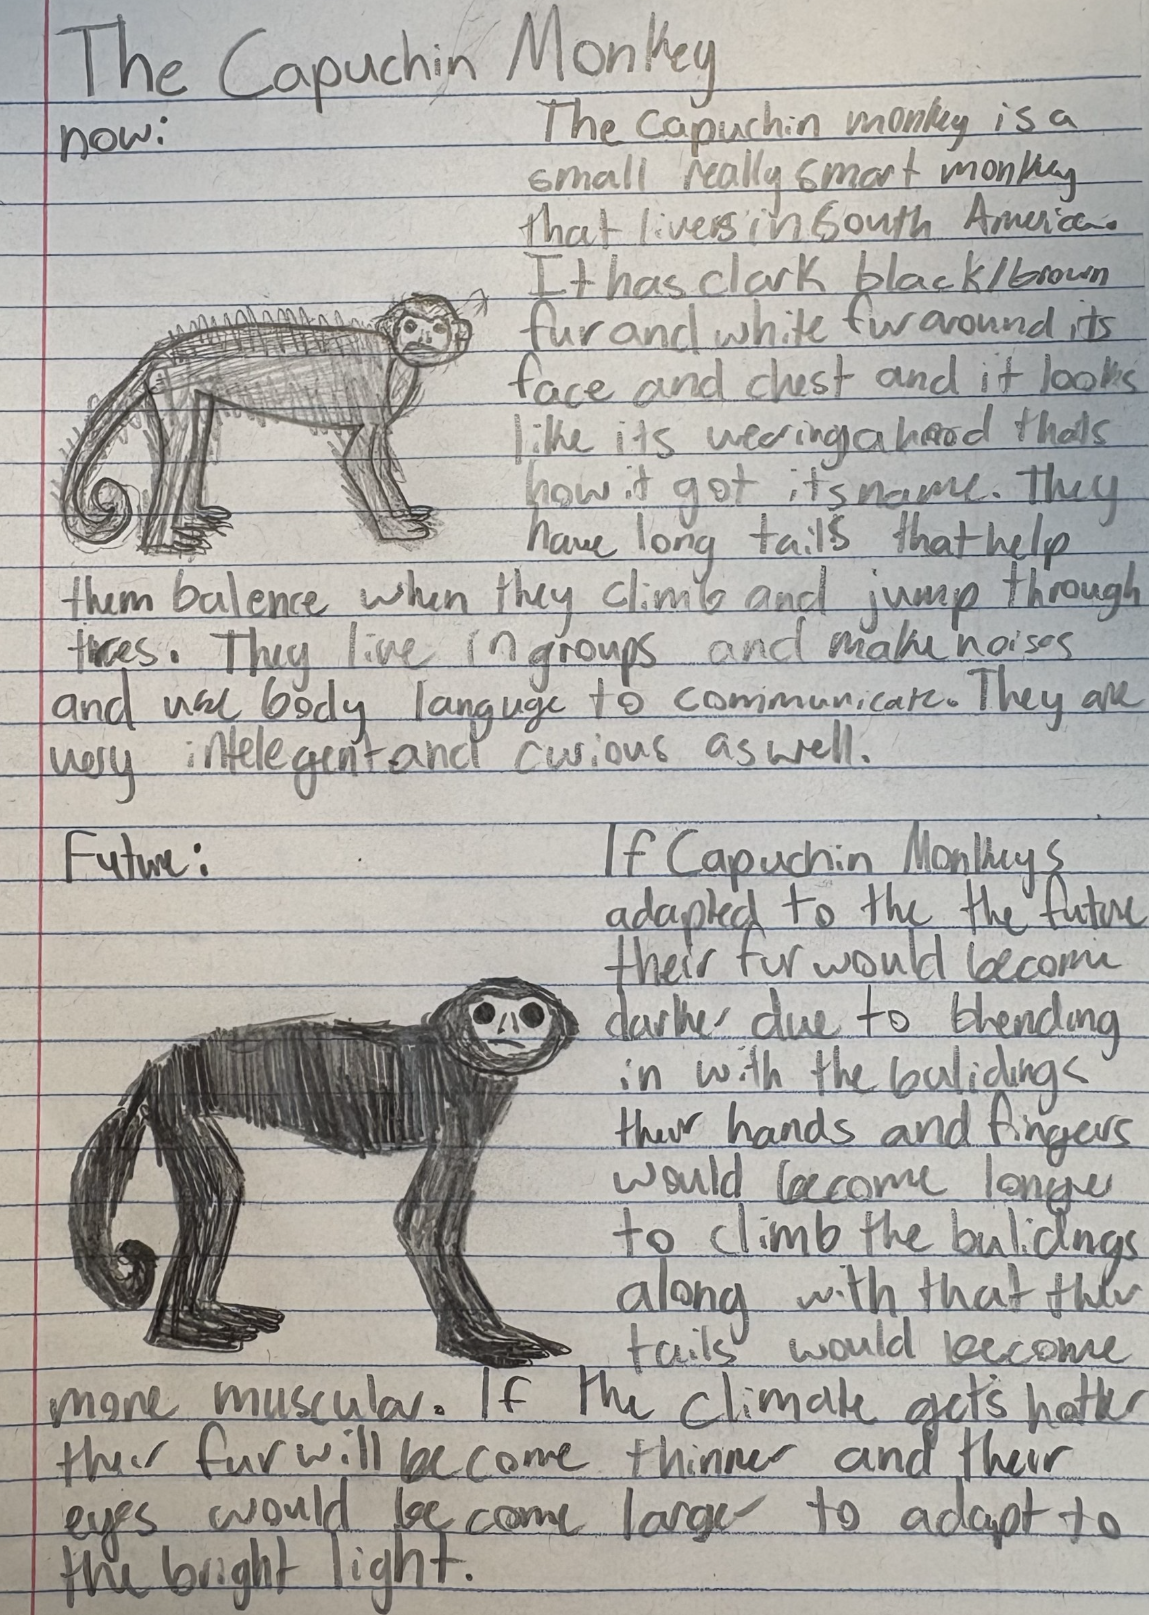 The Capuchin Monkey
now:
The Capuchin monkey is a
small really smart monkey
that livers in South America.
It has dark black/brown
fur and white fur around its
face and chest and it looks
like its wearing a hood thats
how it got its name. They
have long tails that help
them balence when they climb and jump through
trees. They live in groups and make noises
and use body languge to communicate. They are
very intelegent and curious as well.
Future:
If Capuchin Monkeys
adapted to the the future
their fur would become
darker due to blending
in with the bulidings
their hands and fingers
would become longer
to climb the bulidings
along with that their
tails would become
more muscular. If the climate gets hotter
their fur will become thinner and their
eyes would become larger to adapt to
the bright light.